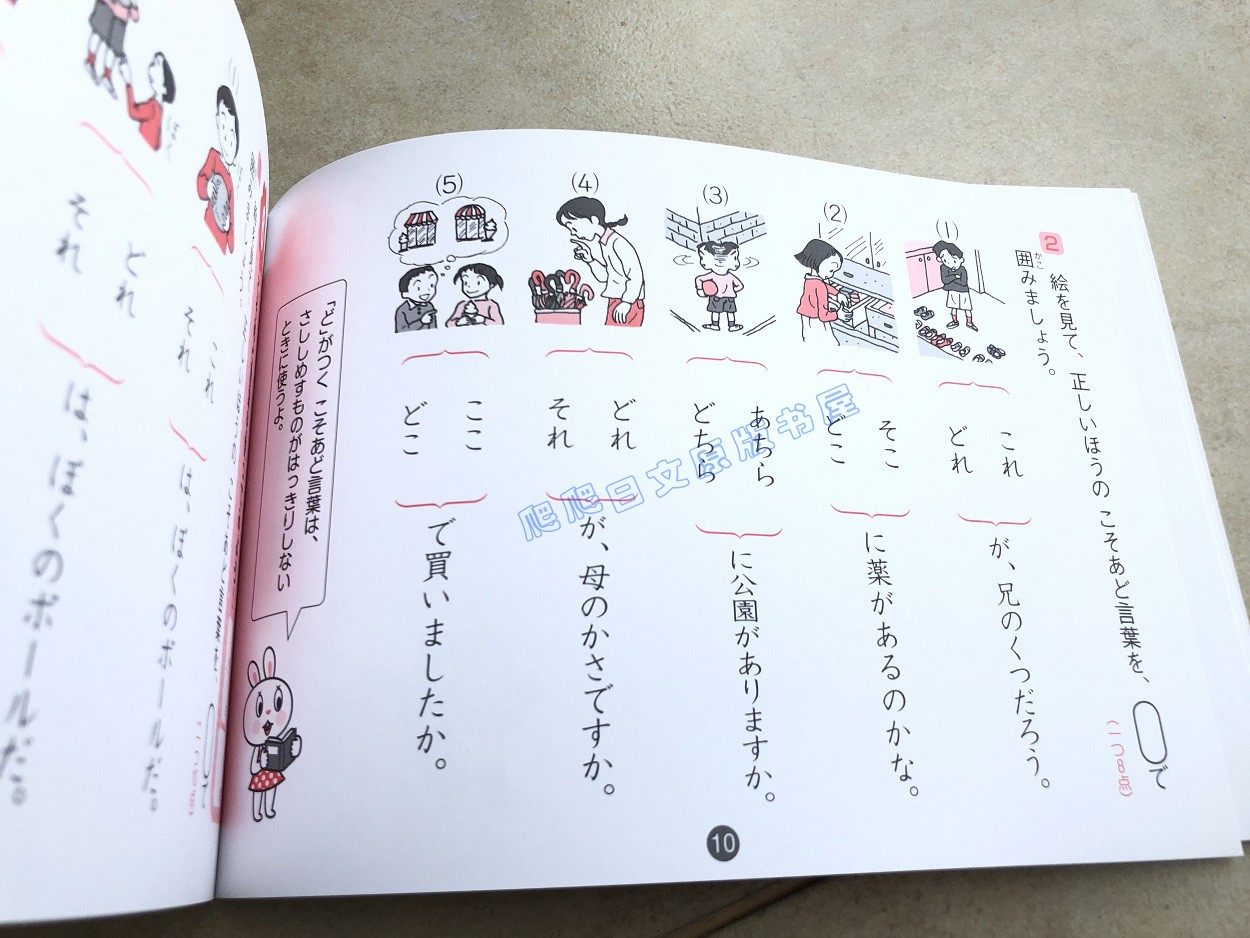 2 絵を見て、正しいほうの こそあど言葉を、◯で
囲みましょう。
かこ
(一つ8点)
(1)
これ
どれ
が、兄のくつだろう。
(2)
そこ
どこ
に薬があるのかな。
(3)
あちら
どちら
に公園がありますか。
(4)
どれ
それ
が、母のかさですか。
(5)
ここ
どこ
で買いましたか。
「ど」がつく こそあど言葉は、
さししめすものがはっきりしない
ときに使うよ。
10
爬爬日文原版书屋
(1)
これ
それ
は、ぼくのボールだ。
どれ
それ
は、ぼくのボールだ。
ぼく